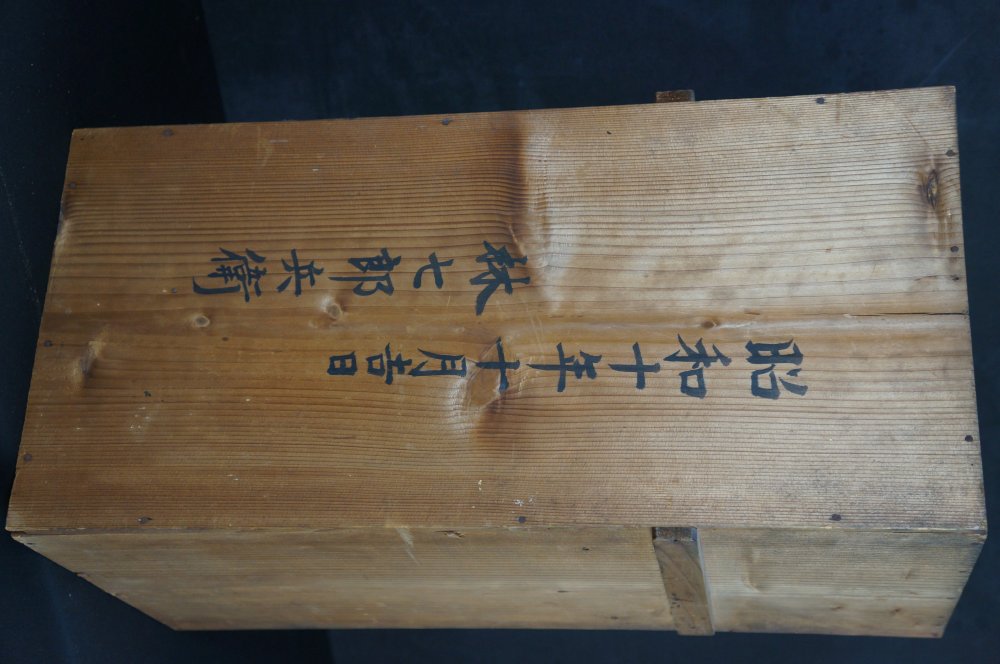 昭和十年十月吉日
林七郎兵衛